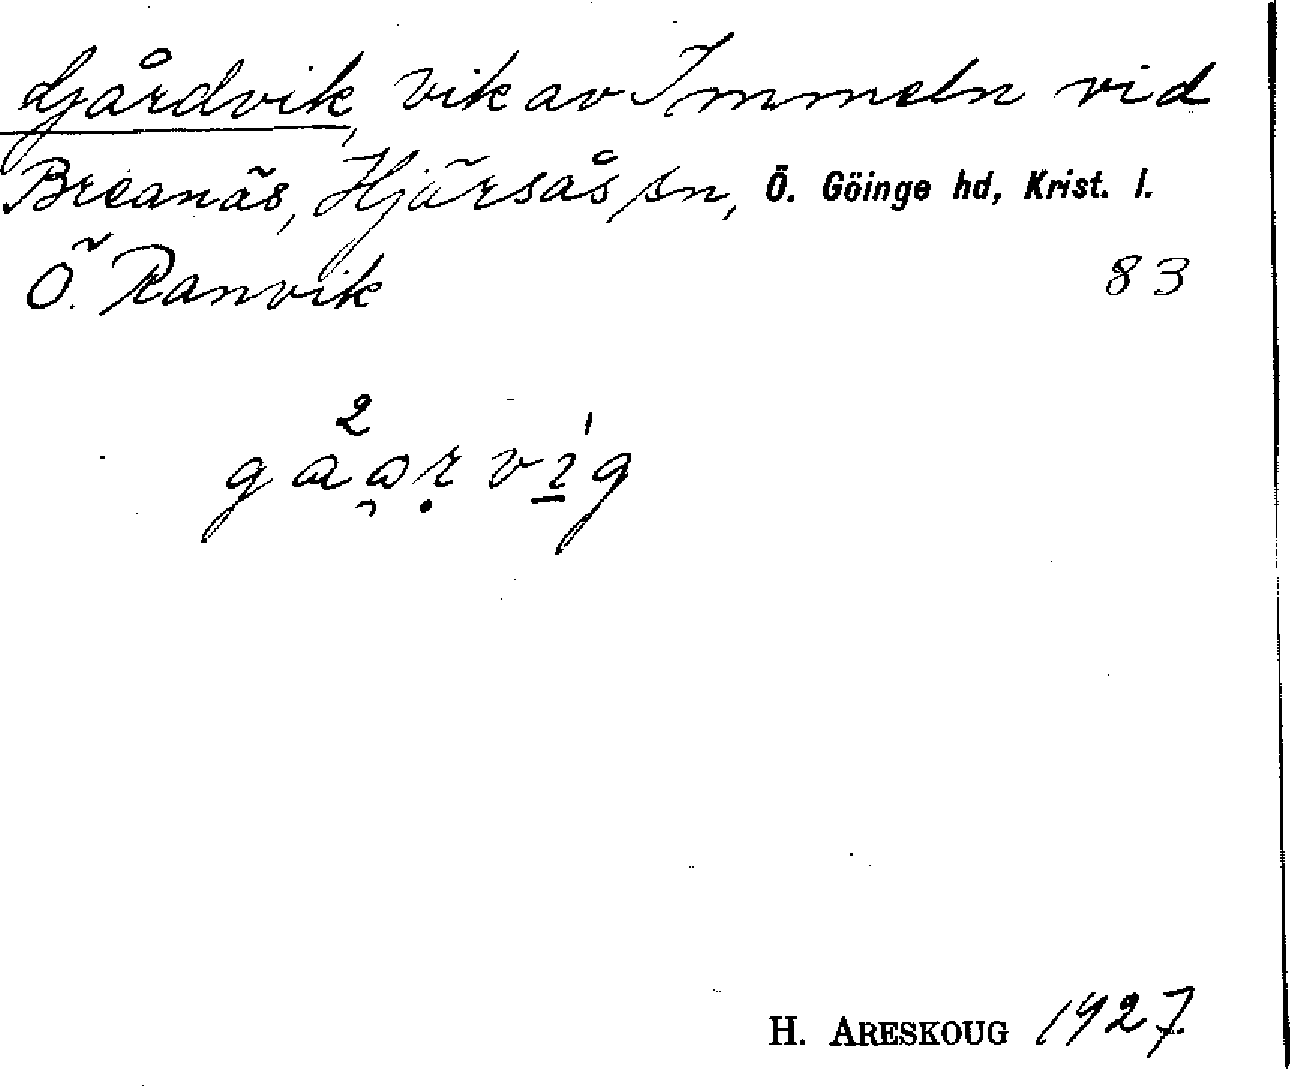 Gårdvik, vik av Immeln vid
Breanäs, Hjärsås sn, Ö. Göinge hd, Krist. l.
Ö. Ranvik 83
H. ARESKOUG 1927